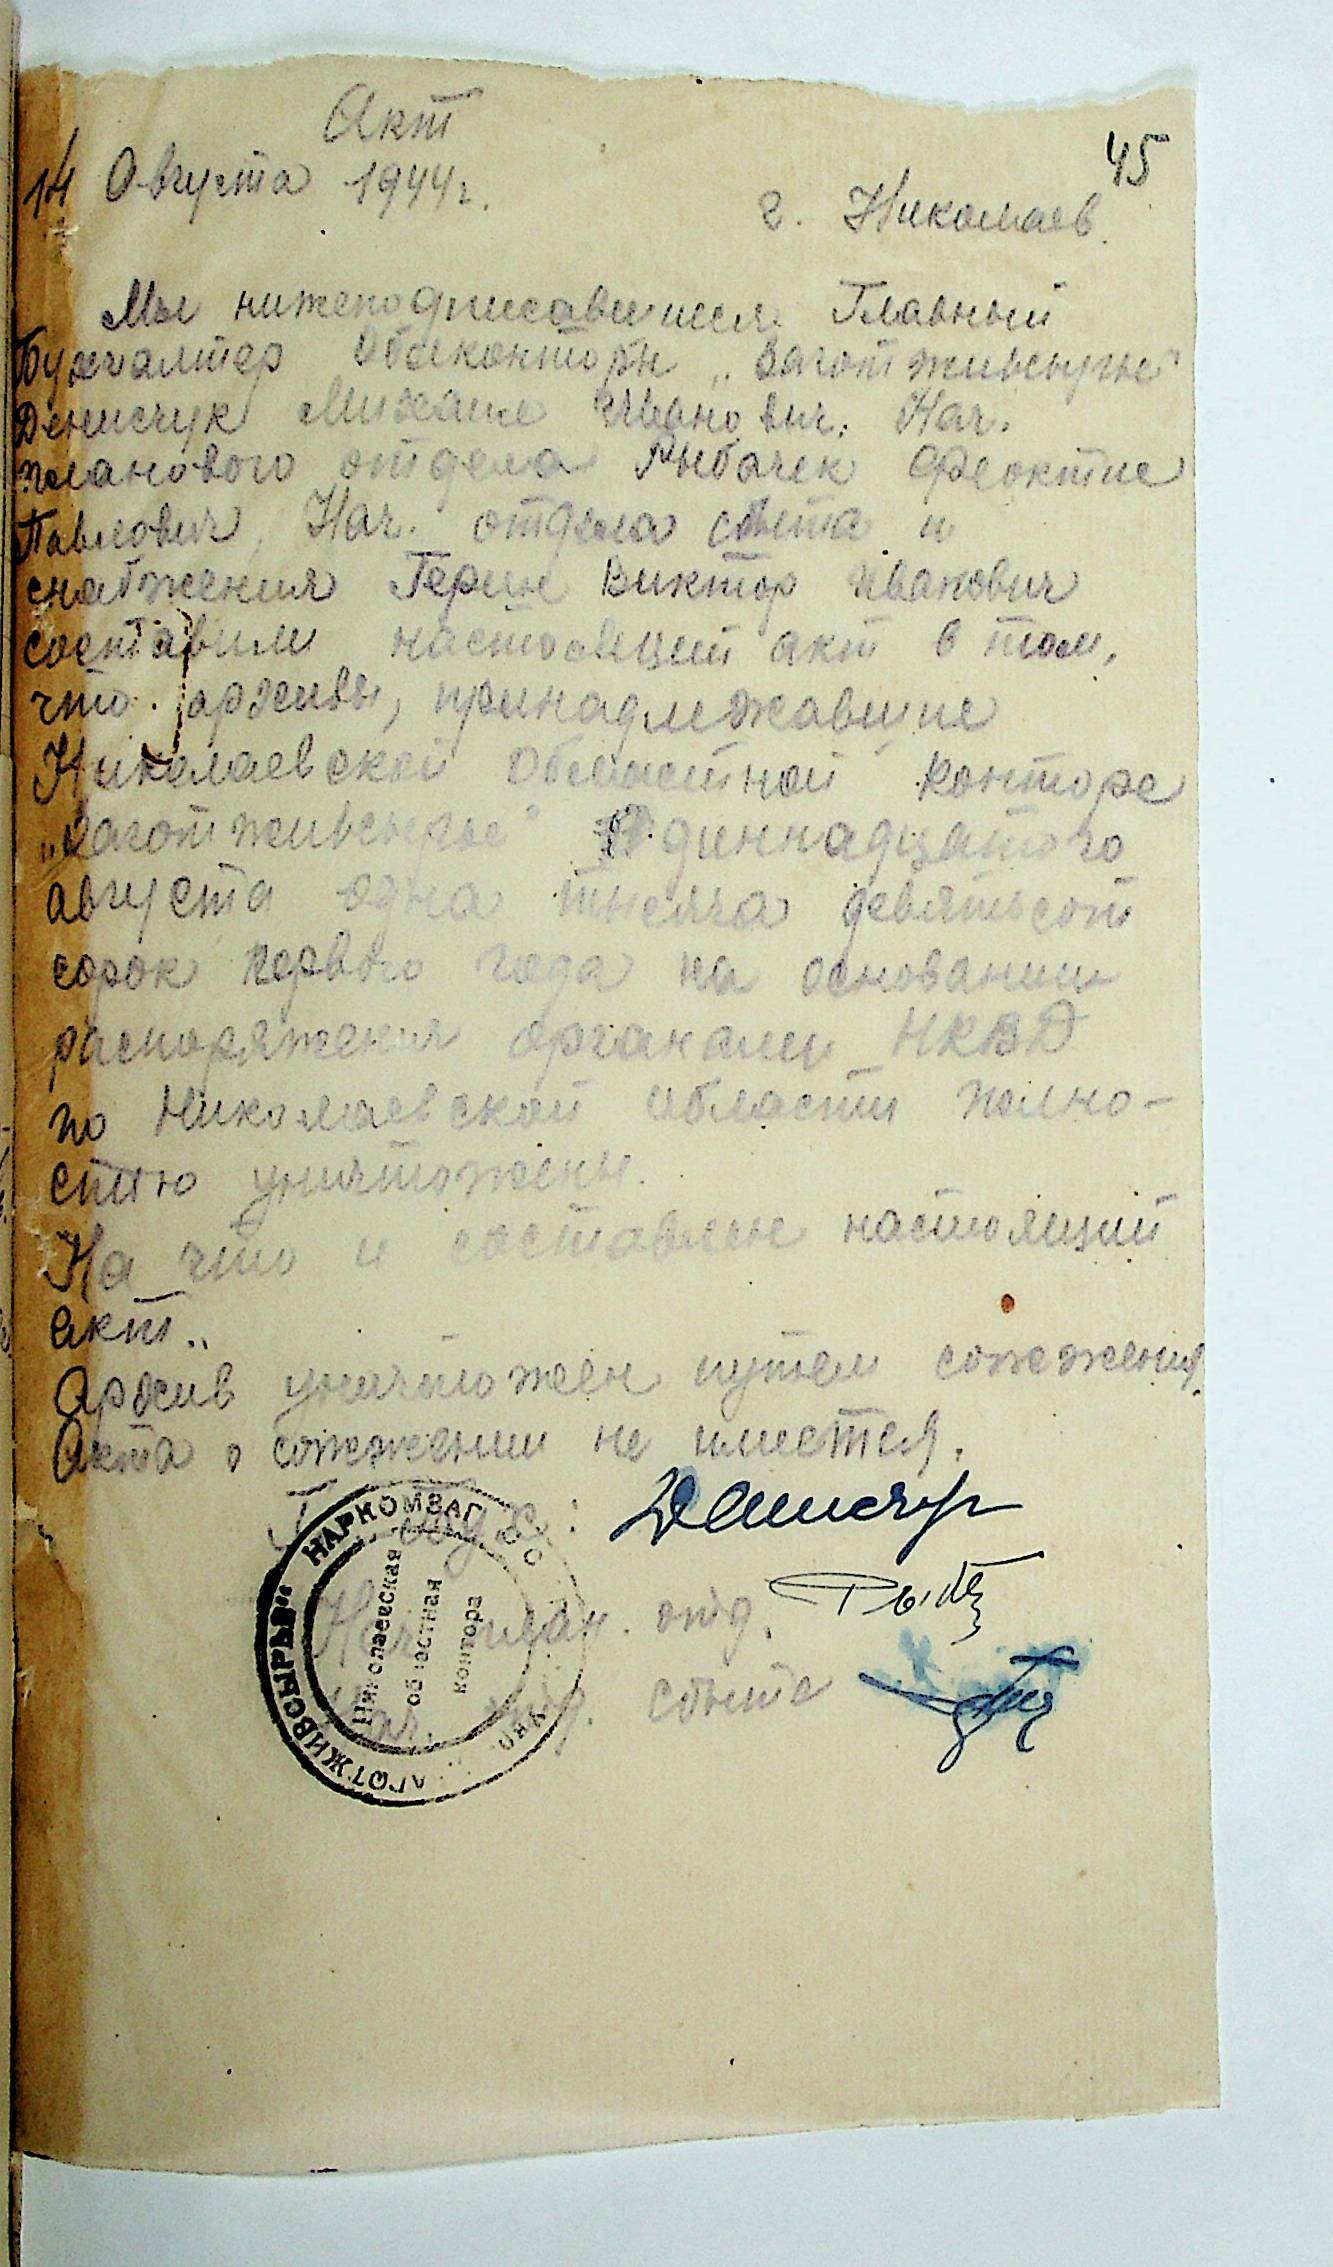 Акт
45
14 Августа 1944 г.
г. Николаев.
Мы нижеподписавшиеся Главный
Бухгалтер Облконторы „Заготживсырье"
Денисчук Михаил Иванович. Нач.
планового отдела Рыбачек Феоктис
Павлович, Нач. отдела сбыта и
снабжения Виктор Иванович
составили настоящий акт в том,
что архивы, принадлежавшие
Николаевской Областной конторе
„Заготживсырье" Одиннадцатого
августа одна тысяча девятьсот
сорок первого года на основании
распоряжения органами НКВД
по Николаевской области полно-
стью уничтожены.
На что и составлен настоящий
акт..
Архив уничтожен путем сожжения.
Акта о сожжении не имеется.
Нач. план. отд.
Нач. отд. сбыта
НАРКОМЗАГ
ЗАГОТЖИВСЫРЬЕ
Николаевская
областная
контора